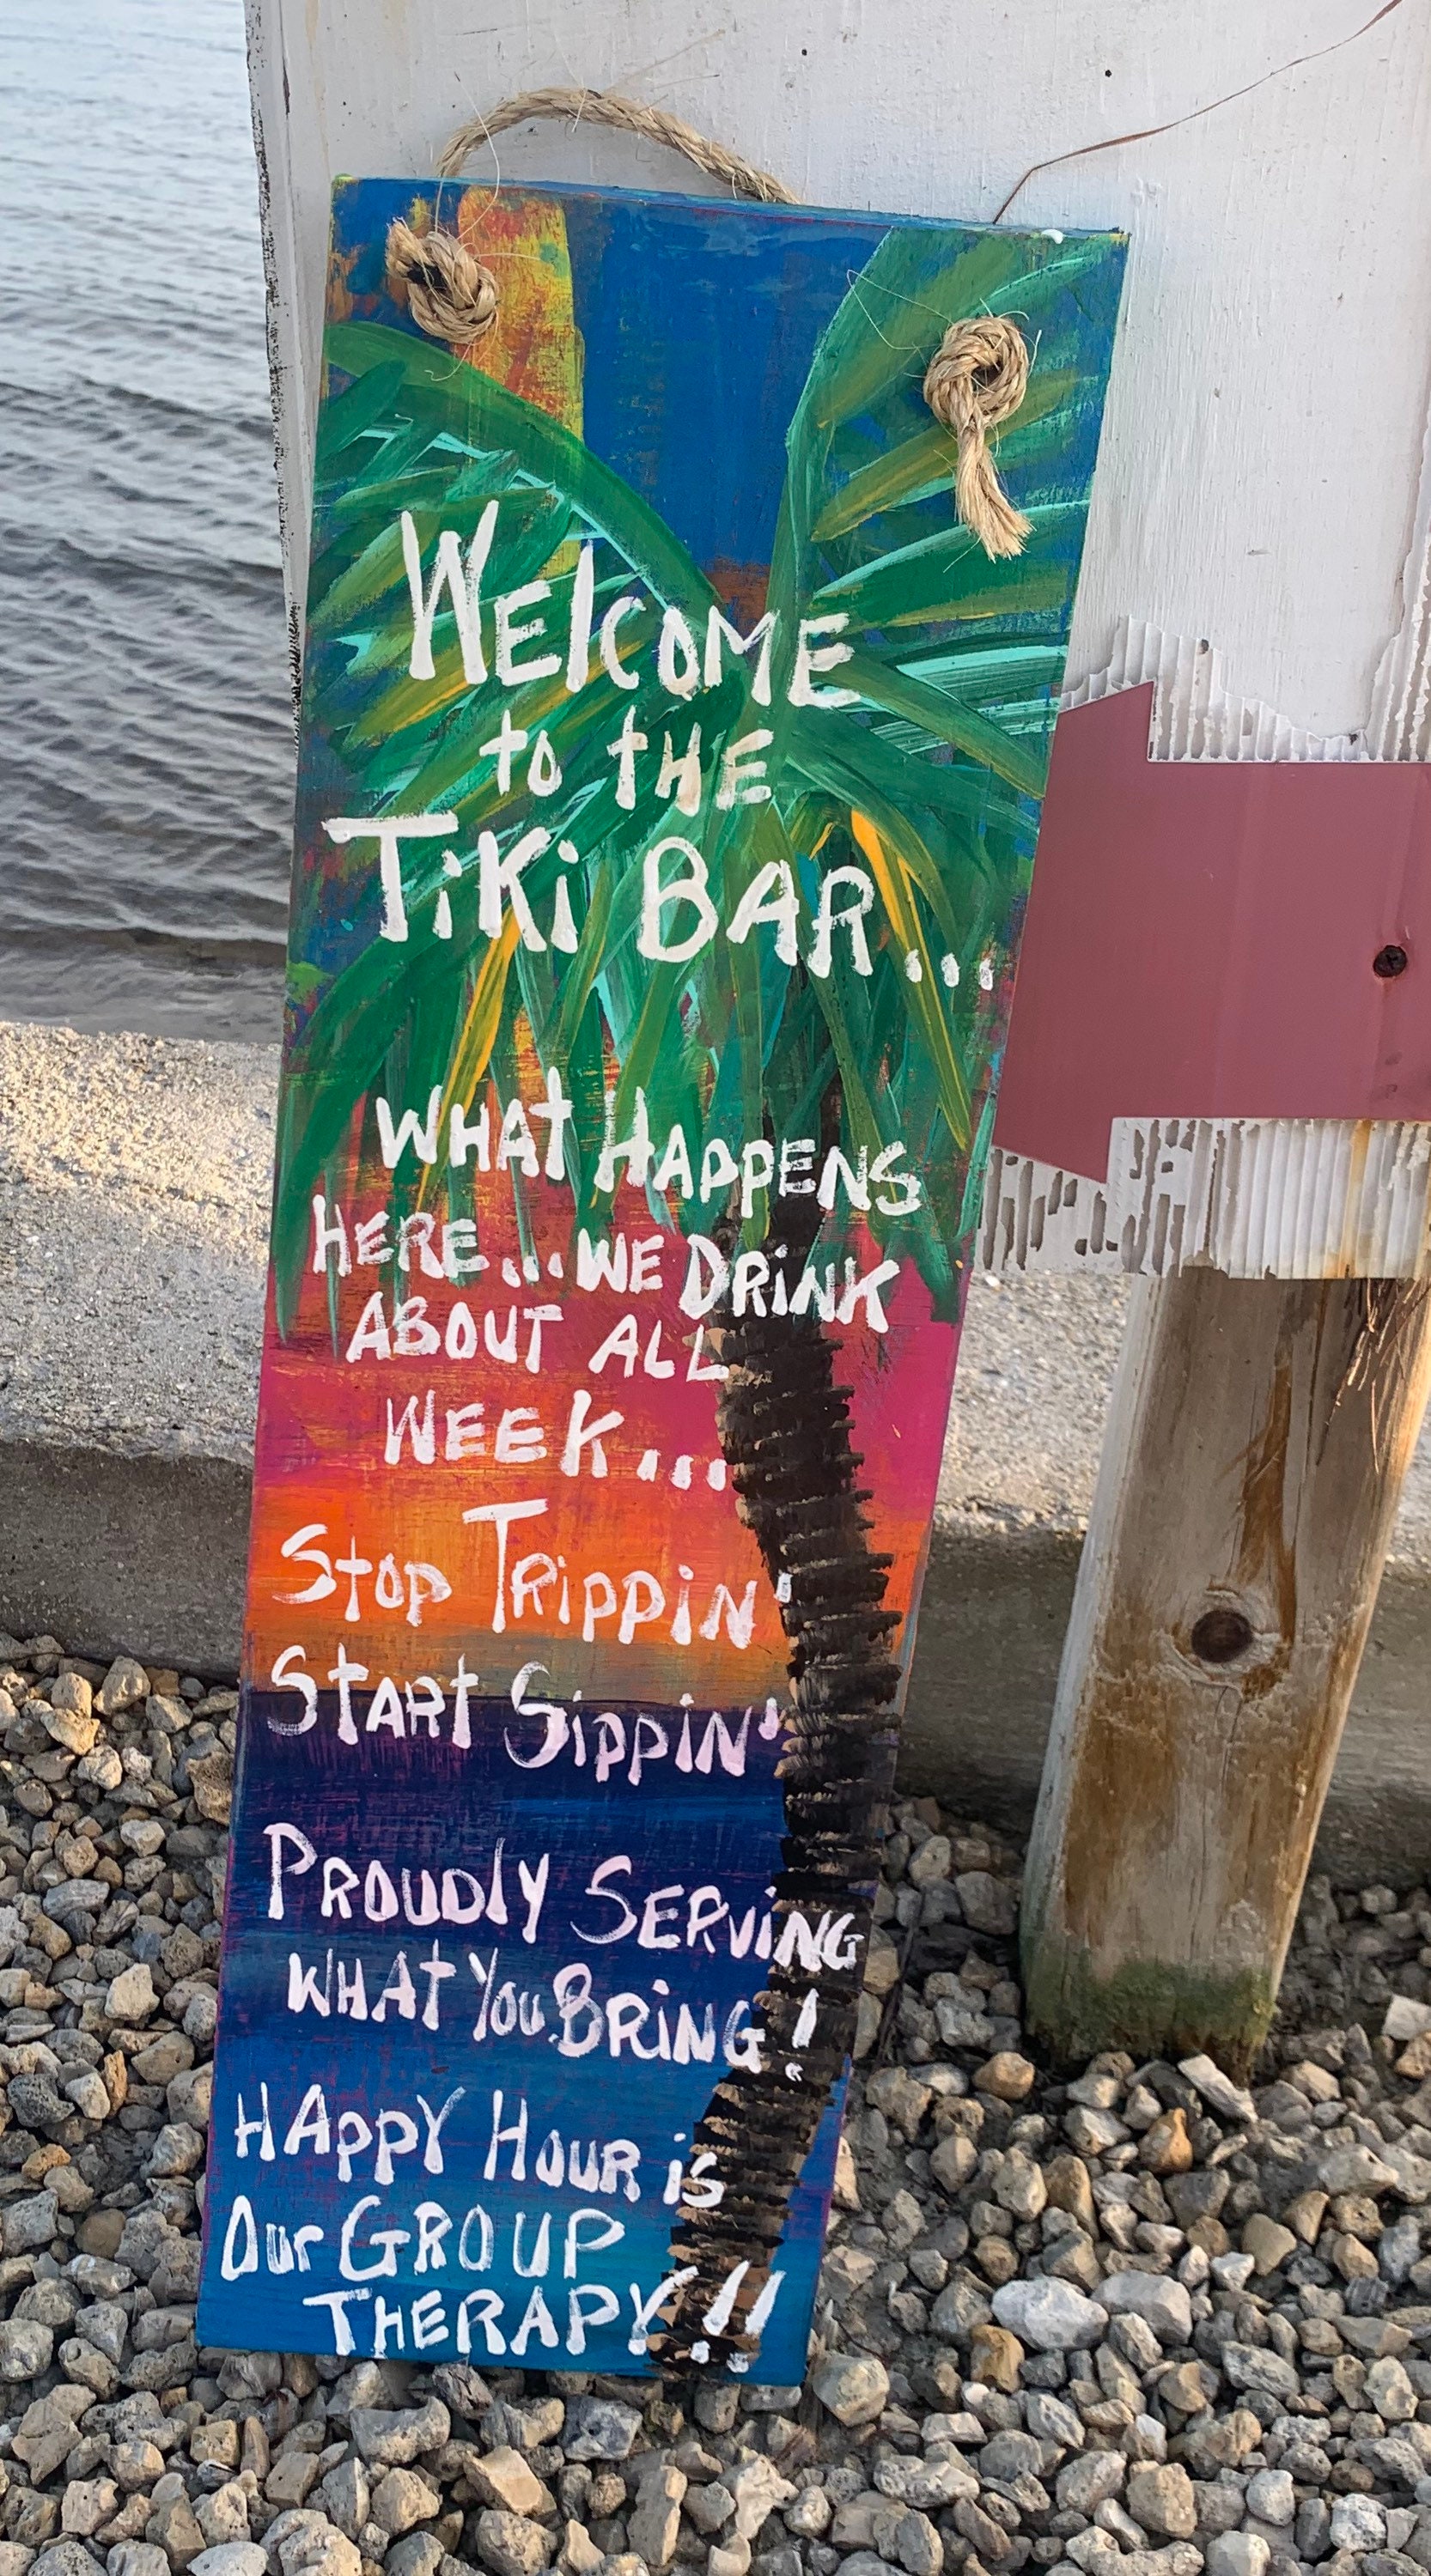 WElcOME
to tHE
TiKi BAR...
WHAt HAppENS
HERE...WE DRiNK
ABOUT ALL
WEEK...
Stop TRippiN'
StARt SippiN'
PROUDly SERViNG
WHAt You BRiNG!
HAppY HOUR is
Our GROUP
THERAPY!!